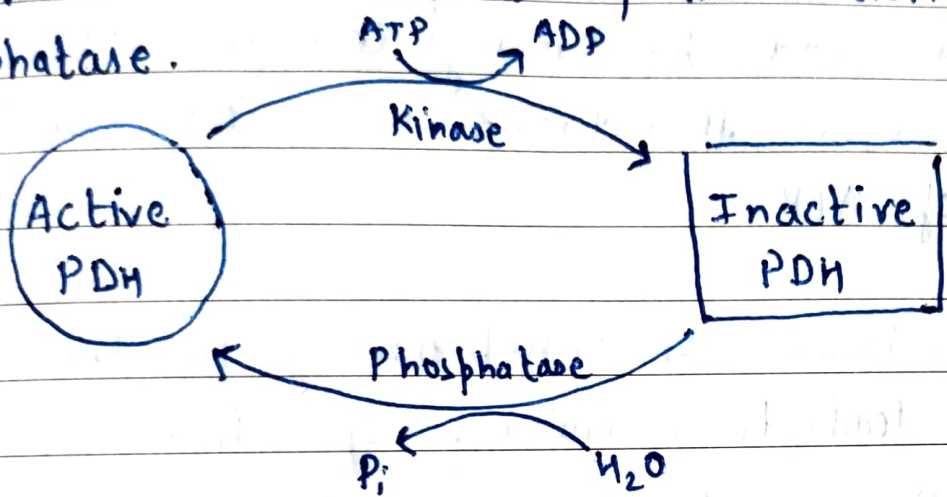 ATP ADP
hatase.
Kinase
Active
PDH
Inactive
PDH
Phosphatase
Pi H₂O